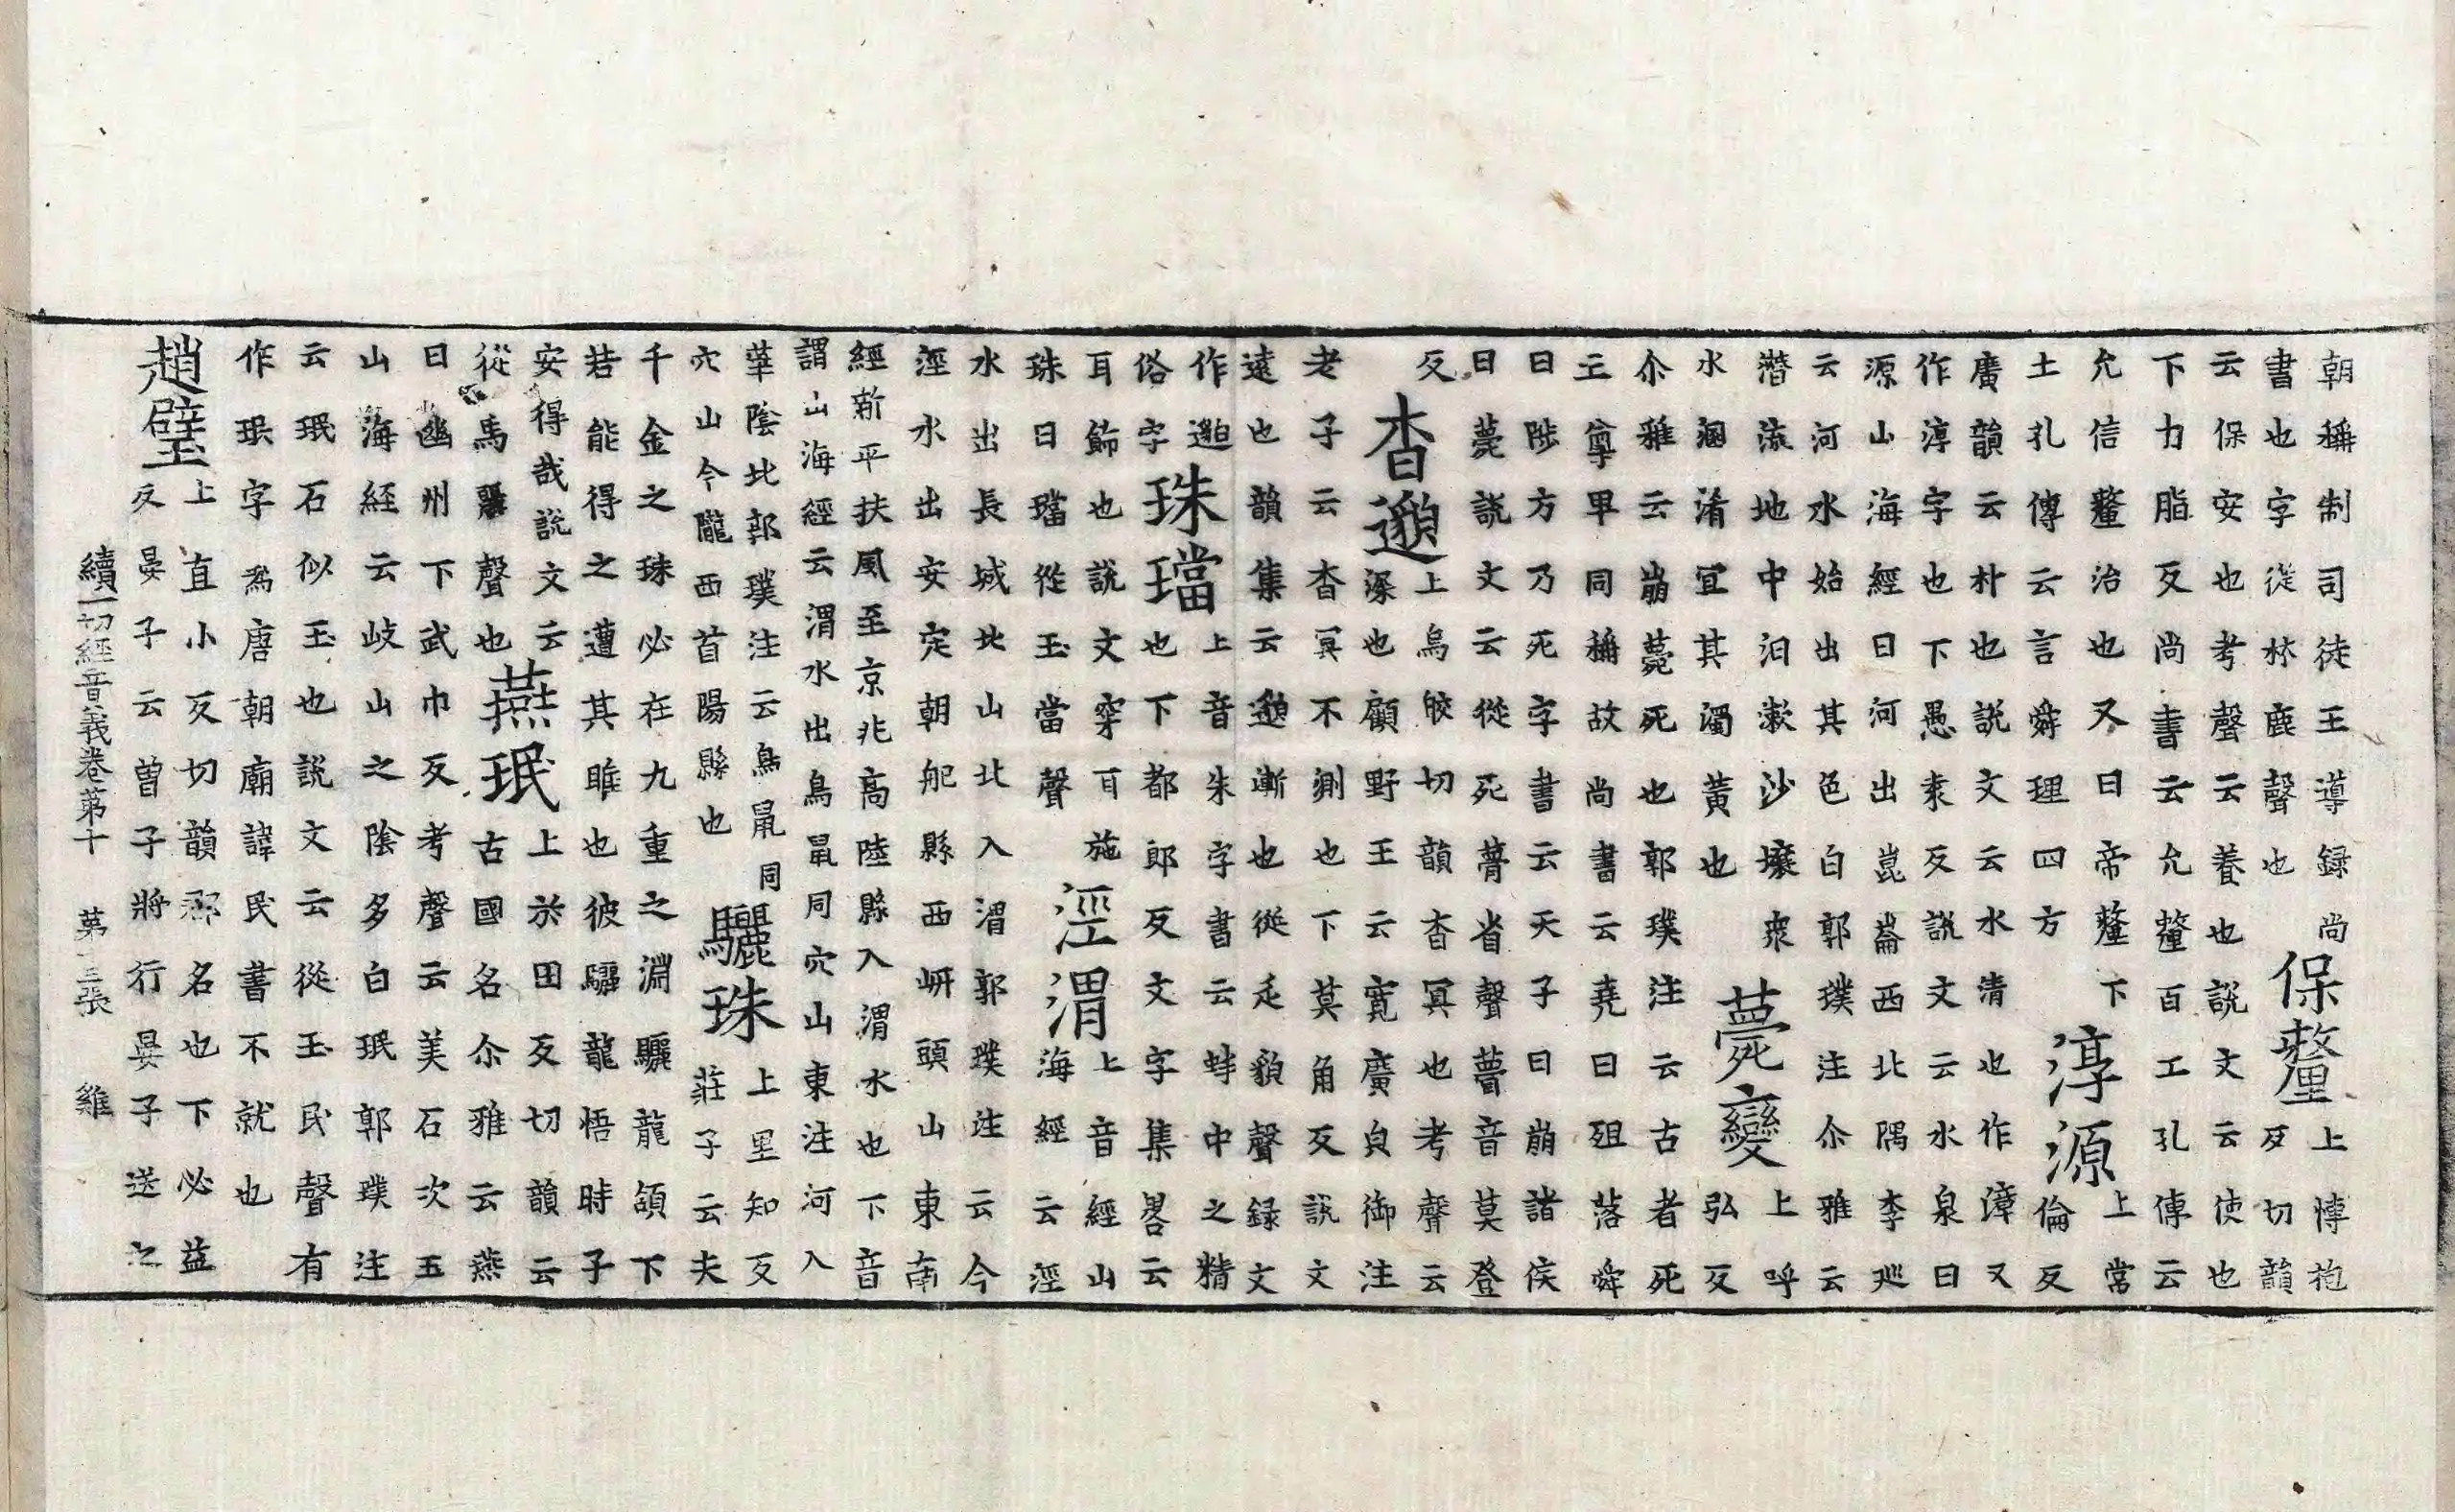 朝稱制司徒王導録尚
書也字從林鹿聲也
保釐
上博抱
反切韻
云保安也考聲云養也說文云使也
下力脂反尚書云允釐百工孔傳云
允信釐治也又曰帝釐下
土孔傳云言舜理四方
淳源
上常
倫反
廣韻云朴也說文云水清也作漳又
作淳字也下愚袁反說文云水泉曰
源山海經曰河出崑崙西北隅李巡
云河水始出其色白郭璞注尒雅云
潛流地中汨漱沙壤衆
水溷淆宜其濁黃也
薨變
上呼
弘反
尒雅云崩薨死也郭璞注云古者死
亡尊卑同稱故尚書云堯曰殂落舜
曰陟方乃死字書云天子曰崩諸侯
曰薨說文云從死瞢省聲瞢音莫登
反
杳邈
上烏皎切韻杳冥也考聲云
深也顧野王云寬廣皃御注
老子云杳冥不測也下莫角反說文
遠也韻集云邈漸也從辵貌聲録文
作邈
俗字
珠璫
上音朱字書云蚌中之精
也下都郎反文字集畧云
耳飾也說文穿耳施
珠曰璫從玉當聲
涇渭
上音經山
海經云涇
水出長城北山北入渭郭璞注云今
涇水出安定朝舥縣西岍頭山東南
經新平扶風至京兆高陸縣入渭水也下音
謂山海經云渭水出鳥鼠同穴山東注河入
華陰北郭璞注云鳥鼠同
穴山今隴西首陽縣也
驪珠
上里知反
莊子云夫
千金之珠必在九重之淵驪龍頷下
若能得之遭其睢也彼驪龍悟時子
安得哉說文云
從馬麗聲也
燕珉
上於田反切韻云
古國名尒雅云燕
曰幽州下武巾反考聲云美石次玉
山海經云岐山之陰多白珉郭璞注
云珉石似玉也說文云從玉民聲有
作珉字爲唐朝廟諱民書不就也
趙璧
上直小反切韻郡名也下必益
反晏子云曾子將行晏子送之
續一切經音義卷第十 第三張 雞